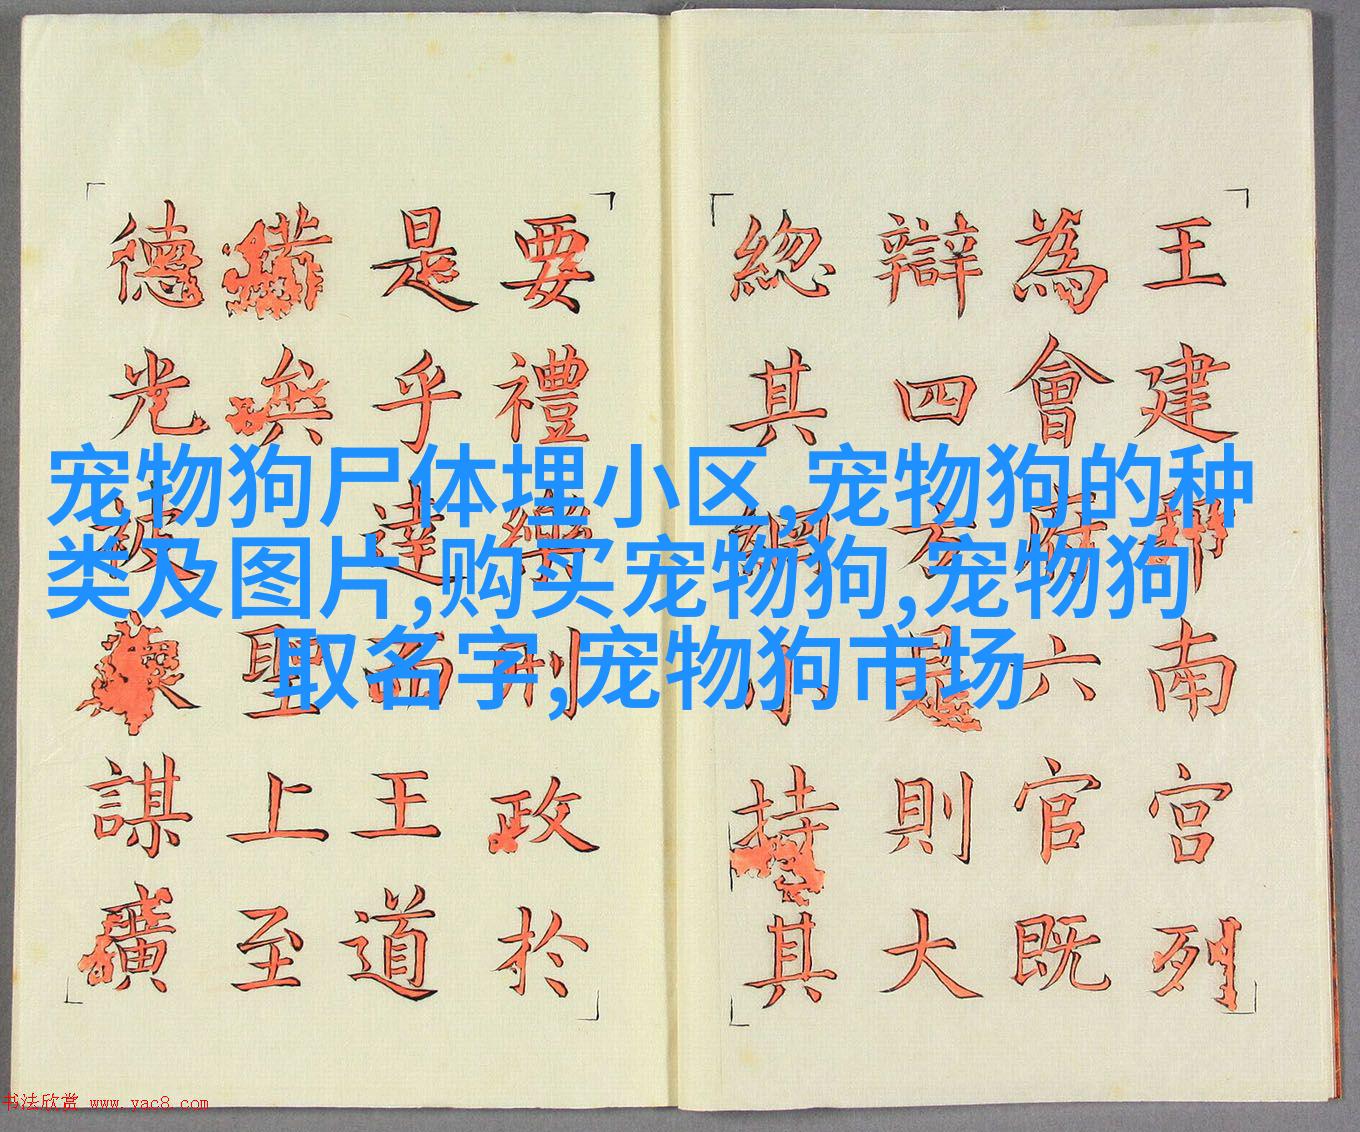 宠物狗尸体埋小区,宠物狗的种
类及图片,购买宠物狗,宠物狗
取名字,宠物狗市场
王建南宫列
為會府六官既
辯四方是則大
緫其綱持其
要禮樂刑政於
是乎達而王道
備矣聖上至
德光被謀
书法欣赏 www.yac8.com